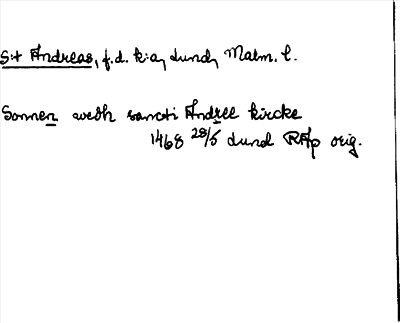 S:t Andreas, f.d. k:a, Lund, Malm. l.
Sonnen wedh sancti Andree kircke
1468 28/5 Lund RAp orig.